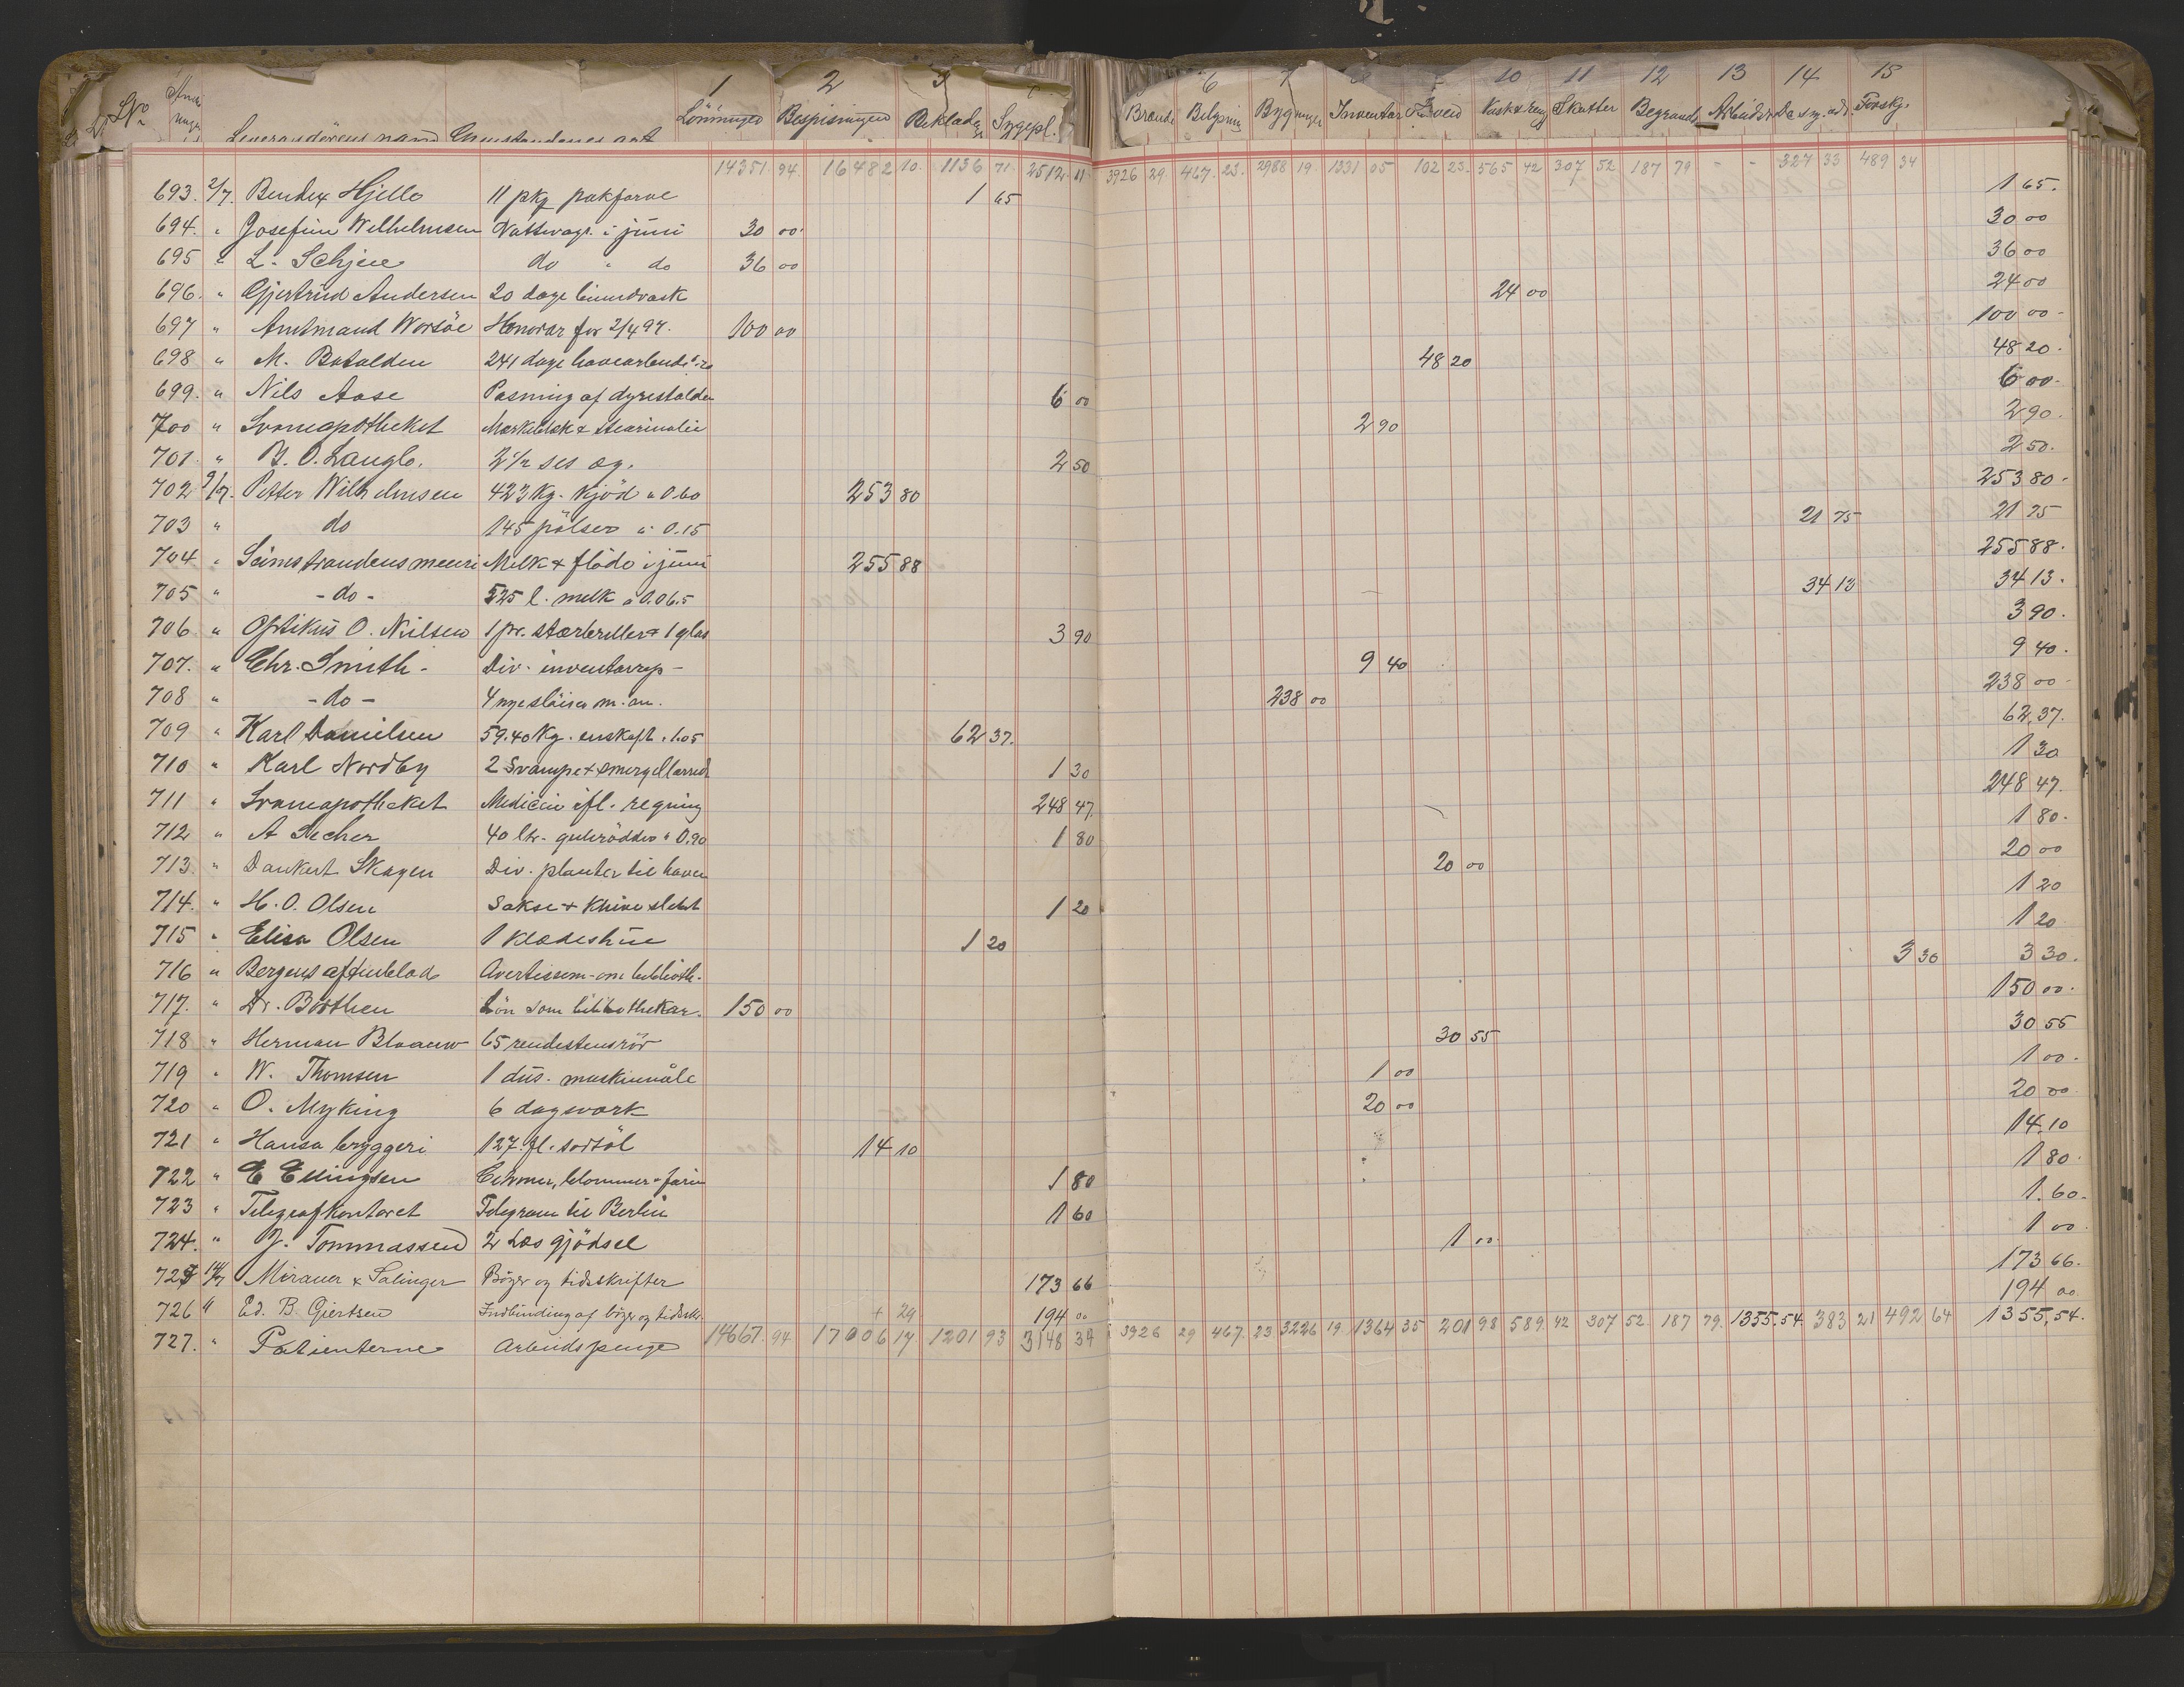 1 2 3 6 7 10 11 12 13 14 15
No Leverandörens navn Gjenstandenes art Lönninger Bespisningen Beklædn Sygepl. Brænde Belysning Bygninger Inventar Skatter Begravels Forskj.
14351 94 16482 10 1136 71 2512 11 3926 29 467 23 2988 19 1331 05 102 23 565 42 307 52 187 79 - - 327 33 489 34
693. 2/7. Bendix Hjelle 11 pkg pakfarve 1 65 1 65.
694. " Josefine Wilhelmsen Nattevagt i juni 30 00 30 00
695 " L. Schjee do " do 36 00 36 00
696. " Gjertrud Andersen 20 dage linnedvask 24 00 24 00
697 " Amtmand Worsöe Honorar for 2/4 97. 100 00 100 00
698 " M. Batalden 241 dage havearbeide 48 20 48 20.
699. " Nils Aase Pasning af dyrestalden 6 00 6 00.
700 " Svaneapotheket Mærkeblæk & stearinolie 2 90 2 90.
701. " B. O. Langlo. 2 1/2 ses æg. 2 50 2 50.
702 9/7. Petter Wilhelmsen 423 Kg. Kjöd a 0.60 253 80 253 80
703 " do 145 pölser a 0.15 21 75 21 75
704 " Seimstrandens meieri Melk & flöde i juni 255 88 255 88.
705 " - do - 525 l. melk a 0.06.5 34 13 34 13.
706. " Optikus O. Nielsen 1 pr. stærbriller & 1 glas 3 90 3 90.
707. " Chr. Smith - Div. inventarrep - 9 40 9 40.
708 " - do - 4 nye slöifer m. an. 238 00 238 00
709 " Karl Danielsen 59.40 Kg. enskaft. 1.05 62 37. 62.37.
710 " Karl Nordby 2 Svampe & smergellærred 1 30 1 30
711 " Svaneapotheket Medicin ifl. regning 248 47. 248 47.
712 " A Secher 40 ltr. gulerödder a 0.90 1 80 1 80.
713. " Dankert Skagen Div. planter til haven 20 00 20 00
714. " H. O. Olsen Sakse & Knive slebet 1 20 1 20
715 " Elisa Olsen 1 Klædeshue 1 20 1 20
716 " Bergens aftenblad Avertissem. om biblioth. 3 30 3 30.
717. " Dr. Börthen Lön som bibliothekar. 150 00 150 00.
718 " Herman Blaauw 65 rendestensrör 30 55 30 55
719 " W. Thomsen 1 dus. maskinnåle 1 00 1 00.
720 " O. Myking 6 dagsværk 20 00 20 00
721 " Hansa bryggeri 127. fl. sortöl 14 10 14.10
722 " E Ellingsen blommer & farin 1 80 1 80.
723 " Telegrafkontoret Telegram til Berlin 1 60 1.60.
724. " J. Tommassen 2 Læs gjödsel 1 00 1 00
725 14/7 Mirauer & Salinger Böger og tidsskrifter 173 66 173 66.
726 " Ed. B. Giertsen Indbinding af böger og tidsskr. + 29 194 00 194 00
727. " Patienterne Arbeidspenge 14667. 94 17006 17 1201 93 3148 34 3926 29 467. 23 3226 19 1364 35 201 98 589. 42 307 52 187 79. 1355.54 383 21 492 64 1355.54.